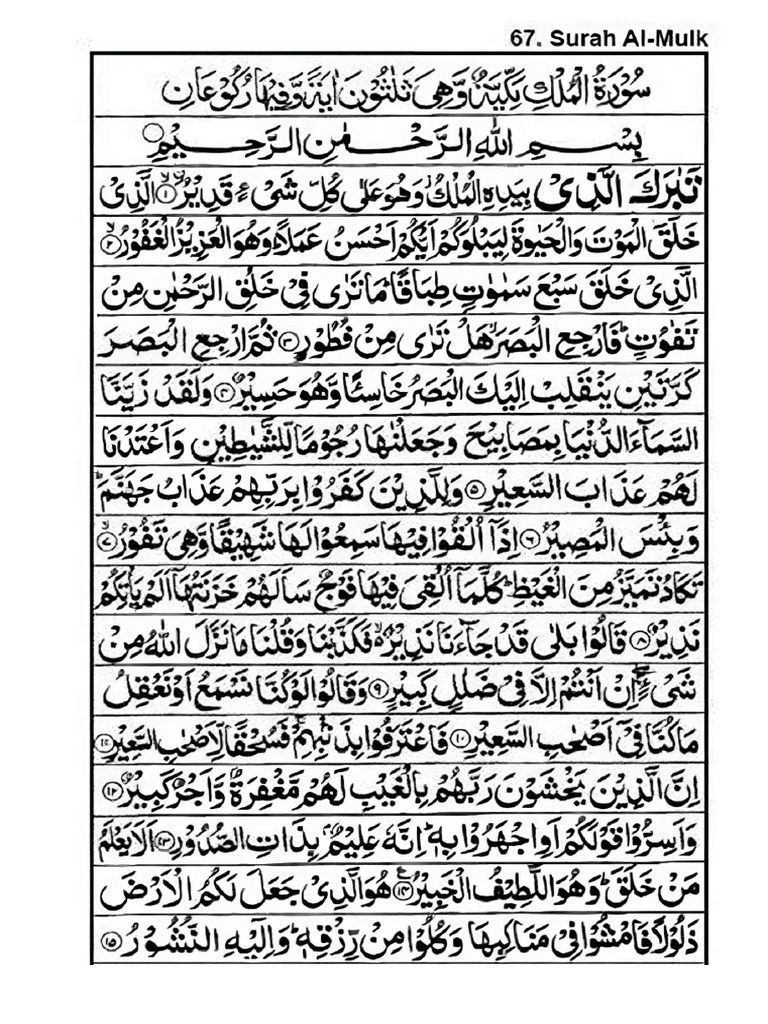 67. Surah Al-Mulk
سُوْرَةُ الْمُلْكِ مَكِّيَّةٌ وَّهِىَ ثَلٰثُوْنَ اٰيَةً وَّفِيْهَا رُكُوْعَانِ
بِسْــمِ اللهِ الرَّحْــمٰنِ الرَّحِــيْمِ
تَبٰرَكَ الَّذِىْ بِيَدِهِ الْمُلْكُ وَهُوَ عَلٰى كُلِّ شَىْءٍ قَدِيْرُ ۙ﴿۱﴾ الَّذِىْ
خَلَقَ الْمَوْتَ وَالْحَيٰوةَ لِيَبْلُوَكُمْ اَيُّكُمْ اَحْسَنُ عَمَلًا ؕ وَهُوَ الْعَزِيْزُ الْغَفُوْرُ ۙ﴿۲﴾
الَّذِىْ خَلَقَ سَبْعَ سَمٰوٰتٍ طِبَاقًا ؕ مَا تَرٰى فِىْ خَلْقِ الرَّحْمٰنِ مِنْ
تَفٰوُتٍ ؕ فَارْجِعِ الْبَصَرَ ۙ هَلْ تَرٰى مِنْ فُطُوْرٍ ﴿۳﴾ ثُمَّ ارْجِعِ الْبَصَرَ
كَرَّتَيْنِ يَنْقَلِبْ اِلَيْكَ الْبَصَرُ خَاسِئًا وَّهُوَ حَسِيْرٌ ﴿۴﴾ وَلَقَدْ زَيَّنَّا
السَّمَآءَ الدُّنْيَا بِمَصَابِيْحَ وَجَعَلْنٰهَا رُجُوْمًا لِّلشَّيٰطِيْنِ وَاَعْتَدْنَا
لَهُمْ عَذَابَ السَّعِيْرِ ﴿۵﴾ وَلِلَّذِيْنَ كَفَرُوْا بِرَبِّهِمْ عَذَابُ جَهَنَّمَ ؕ
وَبِئْسَ الْمَصِيْرُ ﴿۶﴾ اِذَاۤ اُلْقُوْا فِيْهَا سَمِعُوْا لَهَا شَهِيْقًا وَّهِىَ تَفُوْرُ ۙ﴿۷﴾
تَكَادُ تَمَيَّزُ مِنَ الْغَيْظِ ؕ كُلَّمَاۤ اُلْقِىَ فِيْهَا فَوْجٌ سَاَلَهُمْ خَزَنَتُهَاۤ اَلَمْ يَاْتِكُمْ
نَذِيْرٌ ﴿۸﴾ قَالُوْا بَلٰى قَدْ جَآءَنَا نَذِيْرٌ ۙ فَكَذَّبْنَا وَقُلْنَا مَا نَزَّلَ اللهُ مِنْ
شَىْءٍ ۚ اِنْ اَنْتُمْ اِلَّا فِىْ ضَلٰلٍ كَبِيْرٍ ﴿۹﴾ وَقَالُوْا لَوْ كُنَّا نَسْمَعُ اَوْ نَعْقِلُ
مَا كُنَّا فِىْۤ اَصْحٰبِ السَّعِيْرِ ﴿۱۰﴾ فَاعْتَرَفُوْا بِذَنْۢبِهِمْ ۚ فَسُحْقًا لِّاَصْحٰبِ السَّعِيْرِ ﴿۱۱﴾
اِنَّ الَّذِيْنَ يَخْشَوْنَ رَبَّهُمْ بِالْغَيْبِ لَهُمْ مَّغْفِرَةٌ وَّاَجْرٌ كَبِيْرٌ ﴿۱۲﴾
وَاَسِرُّوْا قَوْلَكُمْ اَوِ اجْهَرُوْا بِهٖ ؕ اِنَّهٗ عَلِيْمٌۢ بِذَاتِ الصُّدُوْرِ ﴿۱۳﴾ اَلَا يَعْلَمُ
مَنْ خَلَقَ ؕ وَهُوَ اللَّطِيْفُ الْخَبِيْرُ ﴿۱۴﴾ هُوَ الَّذِىْ جَعَلَ لَكُمُ الْاَرْضَ
ذَلُوْلًا فَامْشُوْا فِىْ مَنَاكِبِهَا وَكُلُوْا مِنْ رِّزْقِهٖ ؕ وَاِلَيْهِ النُّشُوْرُ ﴿۱۵﴾